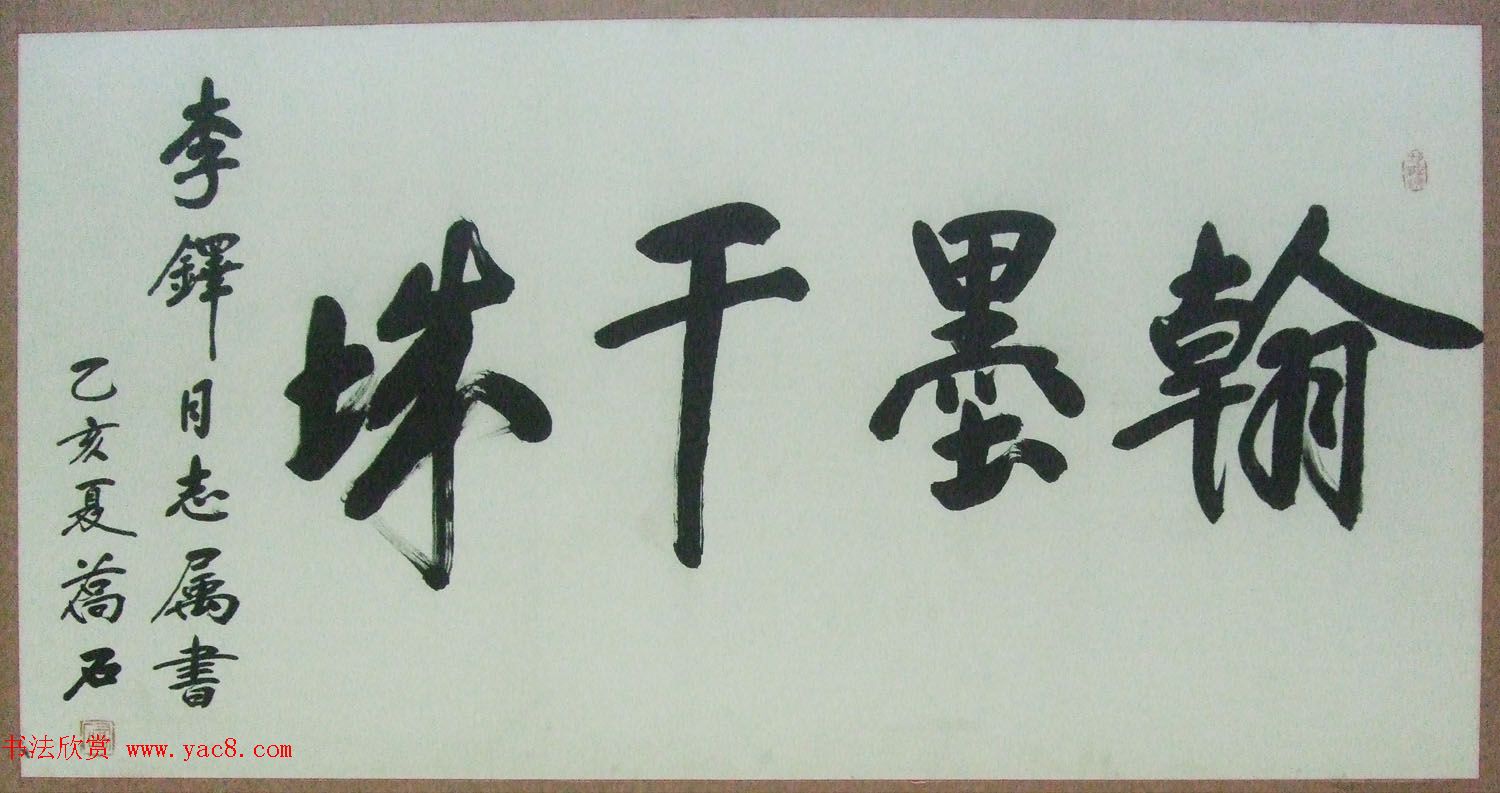 翰墨干城
李鐸同志属書
乙亥夏喬石
书法欣赏 www.yac8.com